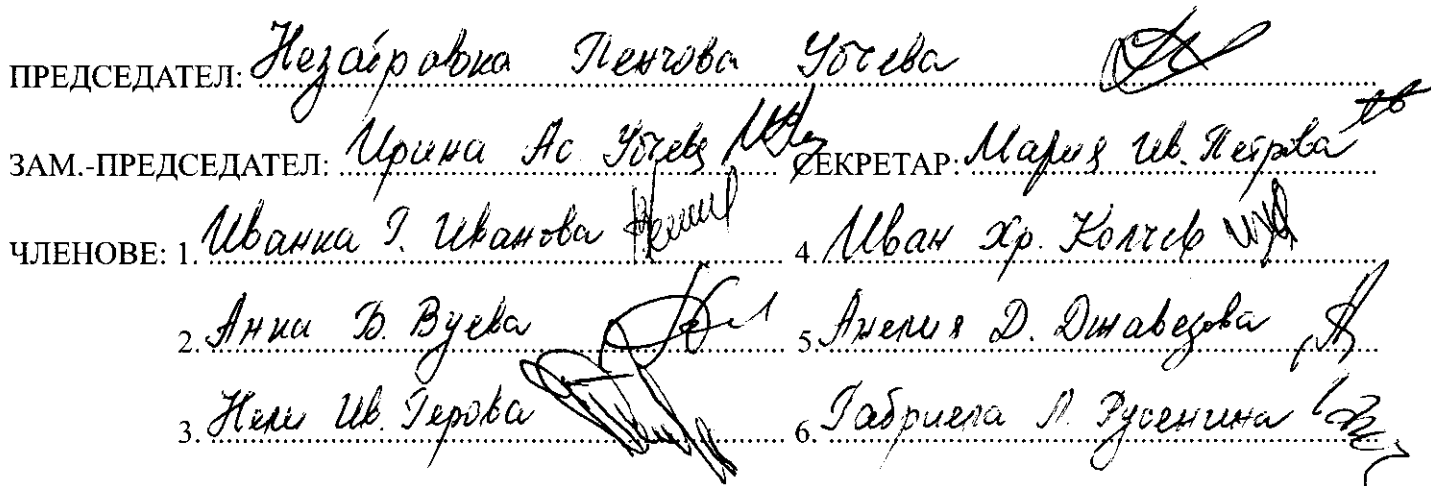 ПРЕДСЕДАТЕЛ: Пенчова
ЗАМ.-ПРЕДСЕДАТЕЛ: Ирина Ас. СЕКРЕТАР: Мария Ив. Петрова
ЧЛЕНОВЕ: 1. Иванка Г. Иванова 4. Иван Хр. Колчев
2. Анна В. Вуева 5. Анелия Д. Джавезова
3. Нели Ив. Герова 6. Габриела Л. Русенчина